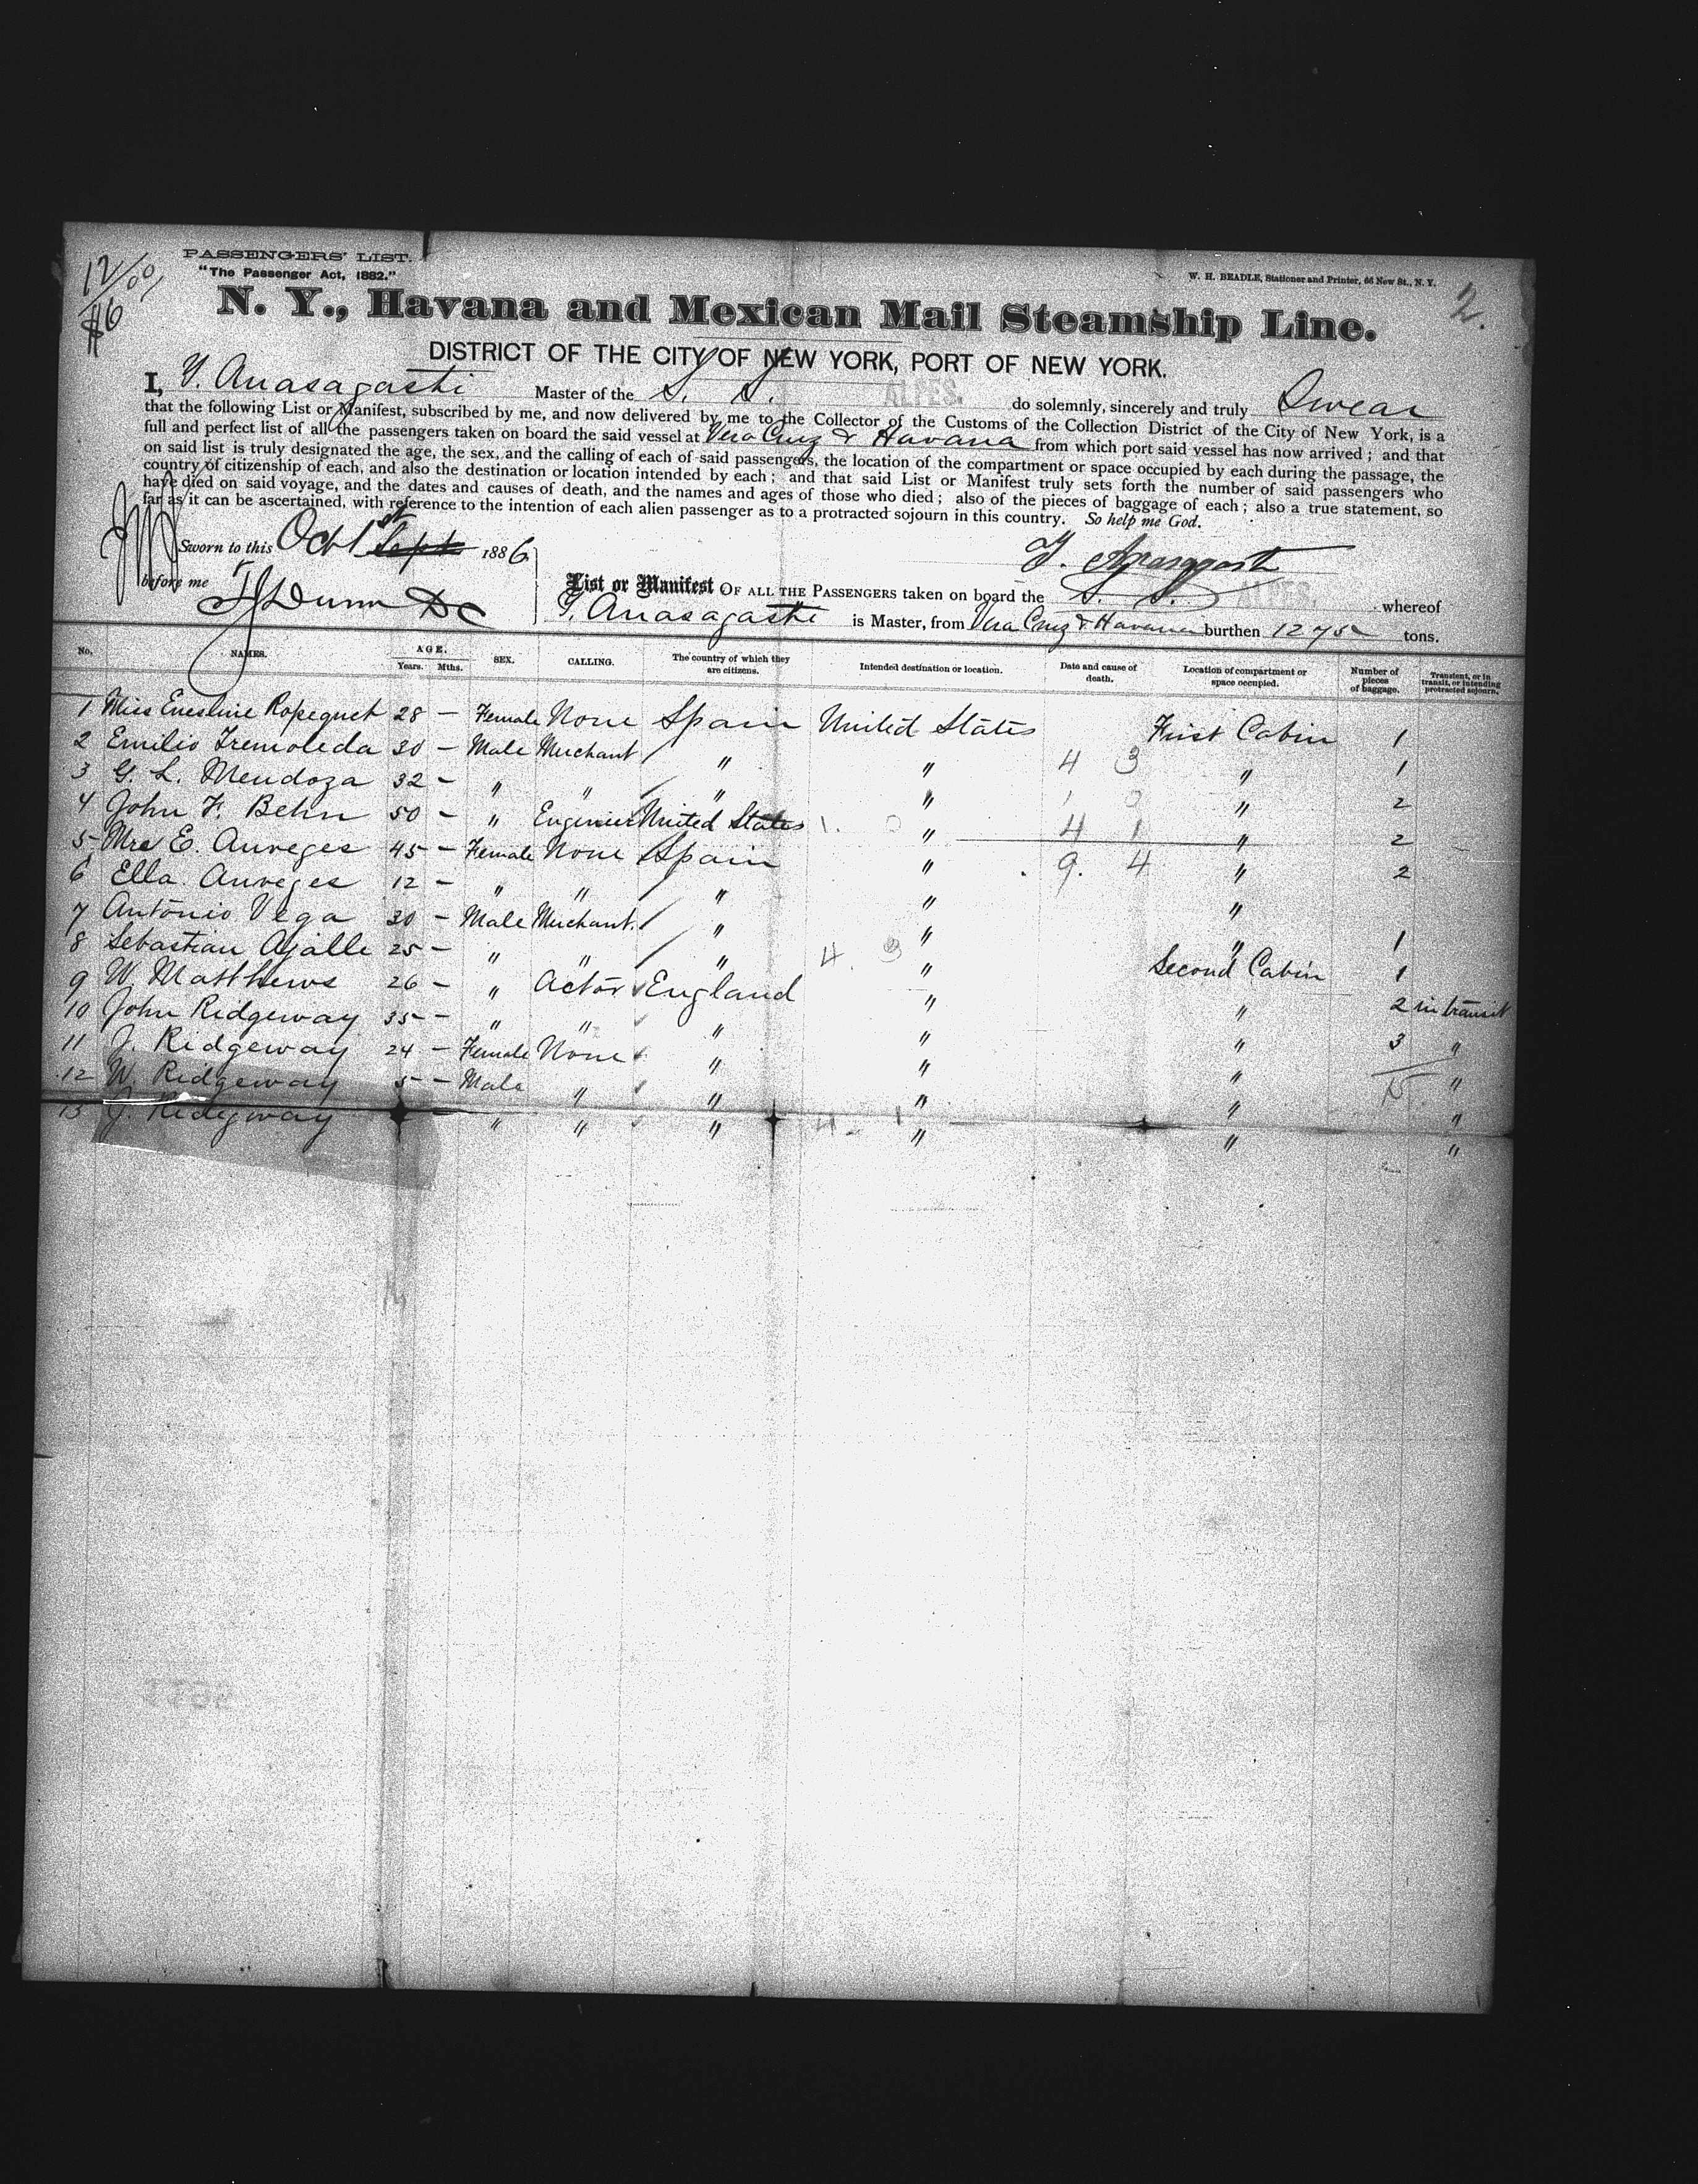 PASSENGERS' LIST.
"The Passenger Act, 1882."
W. H. BEADLE, Stationer and Printer, 66 New St., N. Y.
12/00/
$6
2.
N. Y., Havana and Mexican Mail Steamship Line.
DISTRICT OF THE CITY OF NEW YORK, PORT OF NEW YORK.
I, Y. Anasagasti Master of the S. S. ALPES. do solemnly, sincerely and truly Swear
that the following List or Manifest, subscribed by me, and now delivered by me to the Collector of the Customs of the Collection District of the City of New York, is a
full and perfect list of all the passengers taken on board the said vessel at Vera Cruz & Havana from which port said vessel has now arrived; and that
on said list is truly designated the age, the sex, and the calling of each of said passengers, the location of the compartment or space occupied by each during the passage, the
country of citizenship of each, and also the destination or location intended by each; and that said List or Manifest truly sets forth the number of said passengers who
have died on said voyage, and the dates and causes of death, and the names and ages of those who died; also of the pieces of baggage of each; also a true statement, so
far as it can be ascertained, with reference to the intention of each alien passenger as to a protracted sojourn in this country. So help me God.
Sworn to this Oct 1st Sept 1886
Y. Anasagasti
before me Dunn DC
List or Manifest OF ALL THE PASSENGERS taken on board the S. S. whereof
Y. Anasagasti is Master, from Vera Cruz & Havana burthen tons.
No. NAMES. AGE. Years. Mths. SEX. CALLING. The country of which they are citizens. Intended destination or location. Date and cause of death. Location of compartment or space occupied. Number of pieces of baggage. Transient, or in transit, or intending protracted sojourn.
1 Miss Ropequet 28 — Female None Spain United States First Cabin 1
2 Emilio Tremoleda 30 — Male Merchant " " 4 3 " 1
3 G. L. Mendoza 32 — " " " " " 2
4 John F. Behn 50 — " Engineer United States " 4 1 " 2
5 Mrs E. Anreges 45 — Female None Spain " 9. 4 " 2
6 Ella Anreges 12 — " " " " "
7 Antonio Vega 30 — Male Merchant. " " " 1
8 Sebastian Ajalle 25 — " " " 4. 3 " Second Cabin 1
9 W. Matthews 26 — " Actor England " " 2 in transit
10 John Ridgeway 35 — " " " " " 3 "
11 J. Ridgeway 24 — Female None " " " "
12 W. Ridgeway 5 — Male " " " " "
13 J. Ridgway " " " " " "